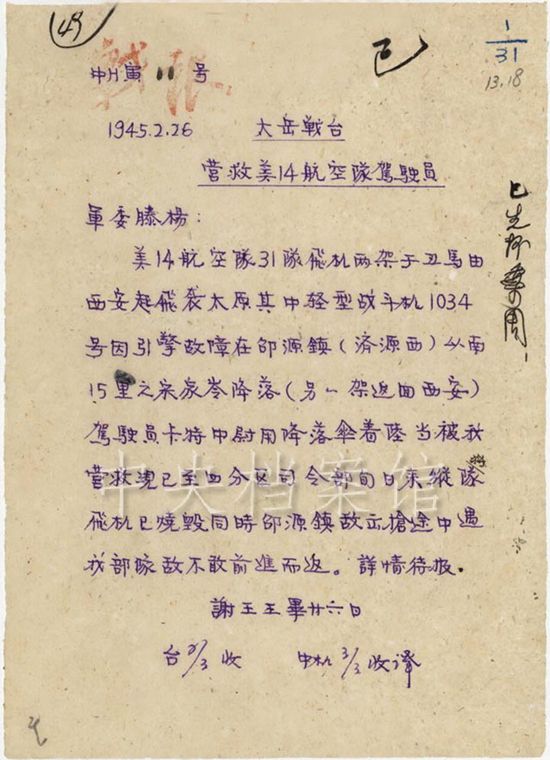 49
戰报
中川寅11号
已
1
31
13.18
1945.2.26 太岳戰台
营救美14航空隊駕駛員
軍委滕楊:
美14航空隊31隊飛机两架于丑馬由
西安起飛袭太原其中轻型战斗机1034
号因引擎故障在邵源鎮(済源西)以南
15里之宋家岺降落(另一架返回西安)
駕駛員卡特中尉用降落傘着陸当被我
营救現已至四分区司令部旬日来縱隊
飛机已燒毀同時邵源鎮敌出搶途中遇
我部隊敌不敢前進而返。詳情待报.
謝王王畢廿六日
台 3/3 收 中机 3/3 收译
已先抄 周
中央档案馆